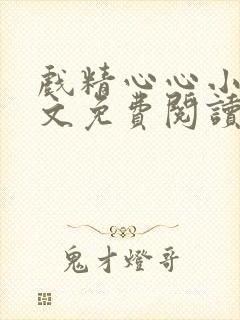 戲精心心小
文免費閱讀
鬼才燈哥